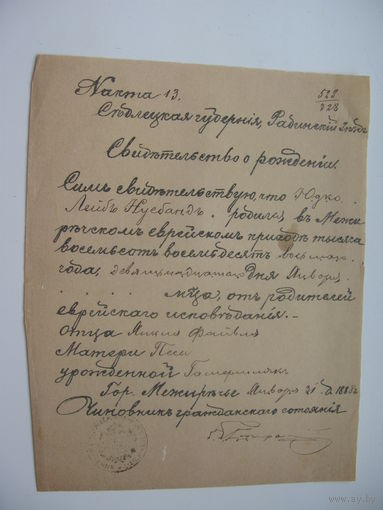 № акта 13.
528
228
Сѣдлецкая губернія, Радинскій Уѣздъ
Свидѣтельство о рожденіи
Симъ свидѣтельствую, что Юдко
Лейбъ Нусбаумъ родился въ Межи
рѣчскомъ еврейскомъ приходѣ тысяча
восемьсотъ восемьдесятъ восьмаго
года, девятнадцатаго дня Января
мѣсяца, отъ родителей
еврейскаго исповѣданія. –
отца Файвля
Матери Песи
урожденной
Гор. Межирѣчье Января 21 д. 1888 г.
Чиновникъ гражданскаго состоянія
www.ay.by